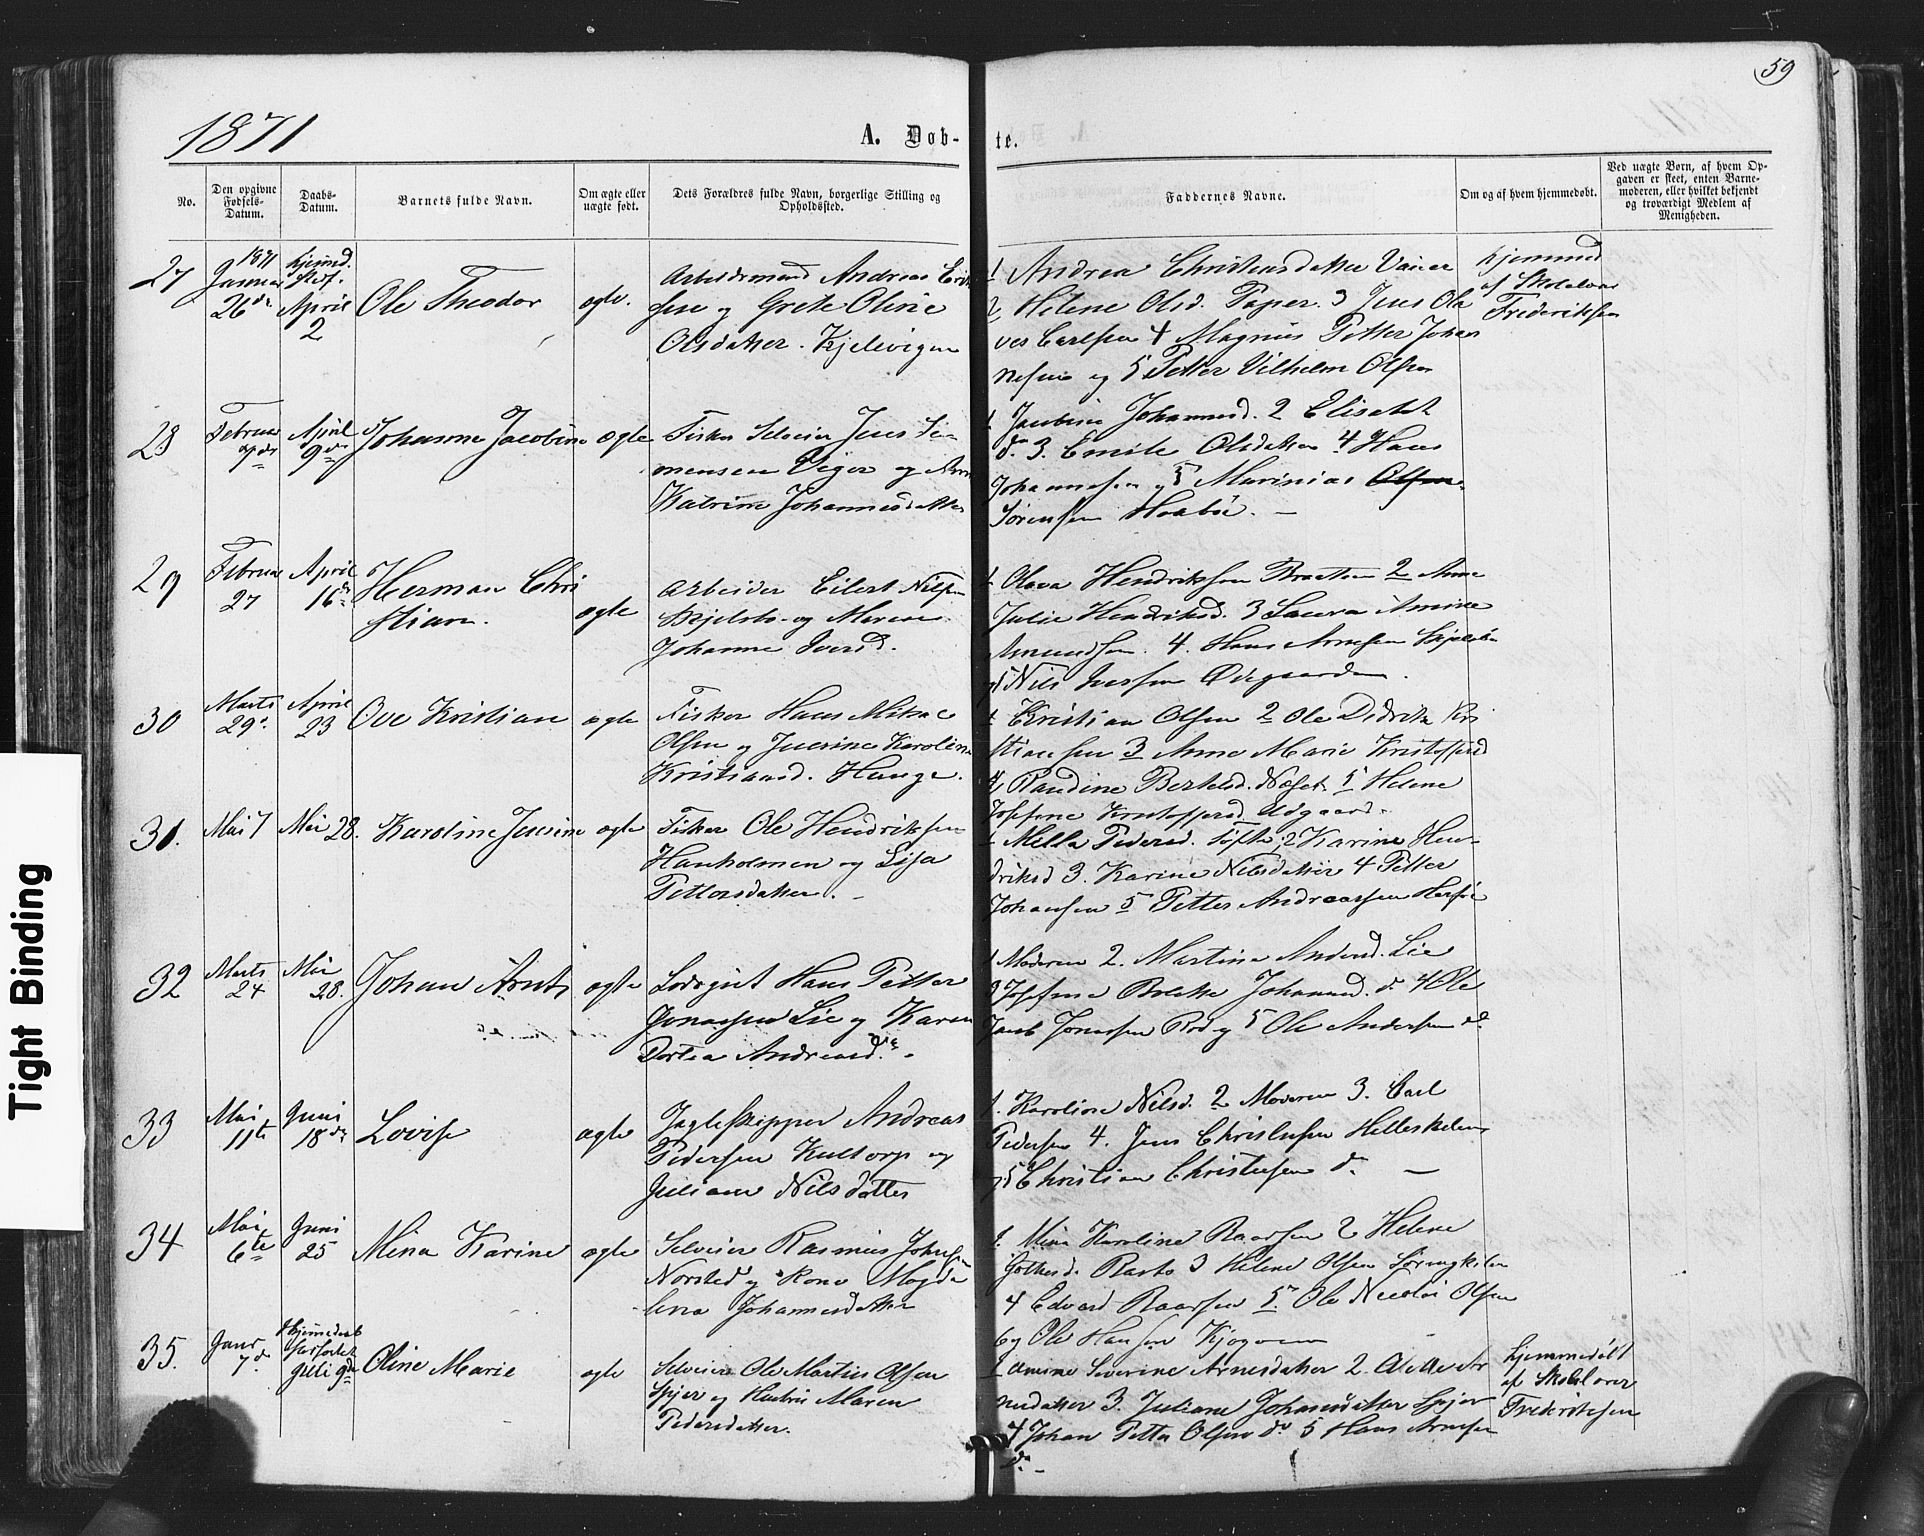 59
1871
A. Døb-
te.
No.
Den opgivne Fødsels-Datum.
Daabs-Datum.
Barnets fulde Navn.
Om ægte eller uægte født.
Dets Forældres fulde Navn, borgerlige Stilling og Opholdssted.
Faddernes Navne.
Om og af hvem hjemmedøbt.
Ved uægte Børn, af hvem Opgaven er skeet, enten Barnemoderen, eller hvilket bekjendt og troværdigt Medlem af Menigheden.
27
1871
Januar
26de
April
2
Ole Theodor
ægte.
Arbeidsmand Andreas Erik
sen og Grete Olivie
Olsdatter. Kjelvigen
1 Andrea Christensdatter
2 Helene Olsd. 3 Jens Ola
ves Carlsen 4 Magnus Petter Johan
nesen og 5 Petter Vilhelm Olsen
hjemmed
af Skolelærer
Frederiksen
28
Februar
April
9de
Johanne Jacobine
ægte
Fisker Selveier Jens Si-
mensen Viger og Anne
Katrine Johannesdatter
1 Jacobine Johannesd. 2 Elisabet
do 3. Emilie Olsdatter 4 Hans
Johannesen og 5 Marinius Olsen
Sørensen
29
Februar
27
April
16de
Herman Chri
stian.
ægte
Arbeider Eilert Nilsen
og Maren
Johanne Iversd.
1 Olava Hendriksen Braatten 2 Anne
Julie Hendriksd. 3 Laura Amine
Amundsen. 4. Hans Arnesen
5 Nils Iversen Ødegaarden.
30
Marts
29.
April
23
Ove Kristian
ægte
Fisker Hans Mikael
Olsen og Karoline
Kristiansd. Hauge.
1 Kristian Olsen 2 Ole Didrik Kri
stiansen 3 Anne Marie Kristoffersd
4 Randine Bertelsd. Næset 5 Helene
Josefine Kristoffersd
31.
Mai 7
Mai 28.
Karoline
ægte
Fisker Ole Hendriksen
Hanholmen og Lisa
Pettersdatter. -
1 Milla Pedersd. Tofte 2 Karine Hen-
driksd 3. Karine Nilsdatter 4 Petter
Johansen 5 Petter Andreassen
32
Marts
24
Mai
28.
Johan Arnt
ægte
Lodsgut Hans Petter
Jonassen Lie og Karen
Dortea Andreasd.
1 Moderen 2. Martine Andersd. Lie
3 Josefine Johannesd. do 4 Ole
Jacob Jonassen Rød og 5 Ole Andersen do
33
Mai
11te
Juni
18de
Lovise
ægte
Jagteskipper Andreas
Pedersen Kultorp og
Juliane Nilsdatter
1. Karoline Nilsd. 2 Moderen 3. Carl
Pedersen 4. Jens Christensen Helleskilen
5 Christian Christensen do. -
34
Mai
6te
Juni
25
Mina Karine
ægte
Selveier Rasmus Johnsen
Norsted og Kone Magda
lena Johannesdatter
1. Mina Karoline Raassen 2 Helene
3 Helene Olsen
4 Edvard Raassen 5. Ole Nicolai Olsen
6 og Ole Hansen
35.
7de
9de
Oline Marie
ægte
Selveier Ole Martin Olsen
og Hustru Maren
Pedersdatter.
1 Amine Severine Arnesdatter 2.
nesdatter 3. Juliane Johannesdatter
4 Johan Petter Olsen do 5 Hans Arnesen
do -
hjemmedøbt
af Skolelærer
Frederiksen
Tight Binding